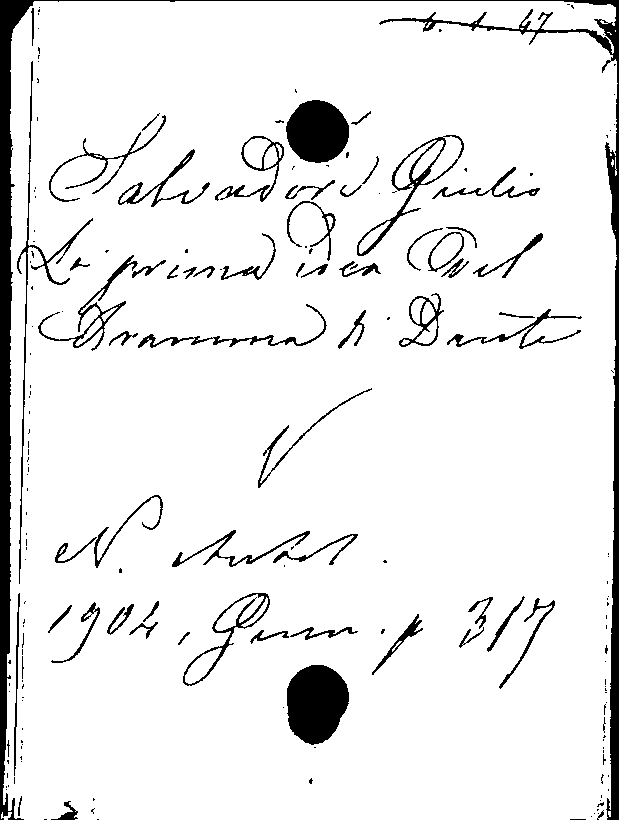 6. 1. 47
Salvadori Giulio
La prima idea del
Dramma di Dante
V
N. Antol.
1904, Genn. p 317